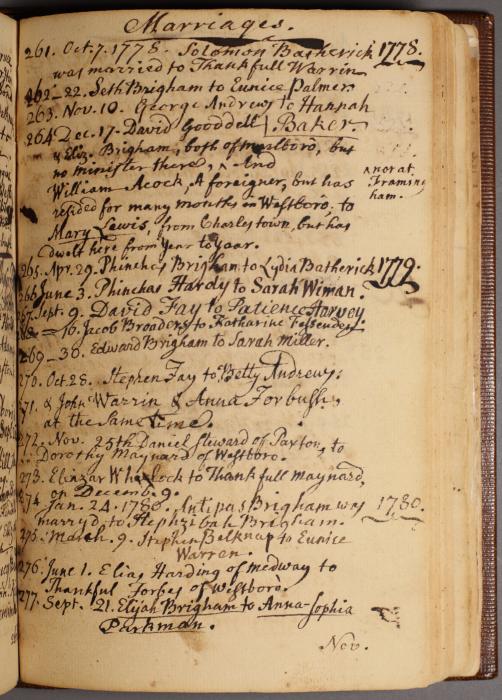 Marriages.
261. Oct. 7. 1778. Solomon Batherick 1778.
was married to Thankfull Warrin
262 - 22. Seth Brigham to Eunice Palmer
263. Nov. 10. George Andrews to Hannah
264 Dec. 17. David Gooddell | Baker.
& Eliz. Brigham, both of Marlboro, but
no minister there, ^ And
^ nor at Framingham.
William Acock, A foreigner, but has
resided for many months in Westboro, to
Mary Lewis, from Charlestown, but has
dwelt here from Year to Year.
265. Apr. 29. Phinehas Brigham to Lydia Batherick 1779.
266 June 3. Phinehas Hardy to Sarah Wiman.
267. Sept. 9. David Fay to Patience Harvey
268 - 16. Jacob Broaders to Katharine Fessenden
269 - 30. Edward Brigham to Sarah Miller.
270. Oct 28. Stephen Fay to Betty Andrews:
271. & John Warrin & Anna Forbush,
at the Same time.
272. Nov. 25th Daniel Steward of Paxton, to
Dorothy Maynard of Westboro.
273. Eliazar Whelock to Thankfull Maynard,
on Decemb. 9.
274 Jan. 24. 1780. Antipas Brigham was 1780.
marry'd to Hephzibah Brigham.
275. March. 9. Stephen Belknap to Eunice
Warren.
276. June 1. Elias Harding of Medway to
Thankful Forbes of Westboro.
277. Sept. 21. Elijah Brigham to Anna-Sophia
Parkman.
Nov.